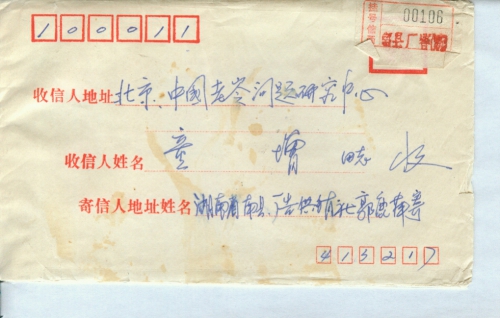 100011
挂号信函
00106
收信人地址 北京、中国老令问题研究中心
收信人姓名 童 增 同志 收
寄信人地址姓名 湖南省南县
413217